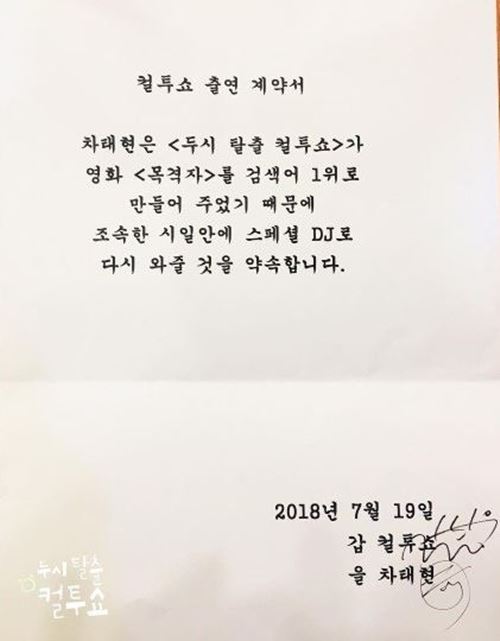 컬투쇼 출연 계약서
차태현은 <두시 탈출 컬투쇼>가
영화 <목격자>를 검색어 1위로
만들어 주었기 때문에
조속한 시일안에 스페셜 DJ로
다시 와줄 것을 약속합니다.
2018년 7월 19일
갑 컬투쇼
을 차태현
두시탈출
컬투쇼